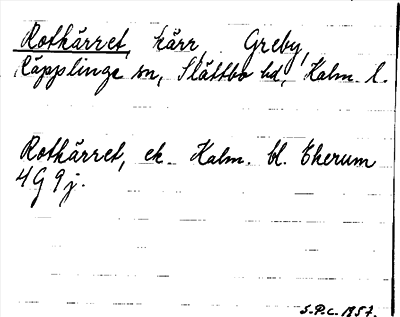 Rotkärret, kärr, Greby,
Räpplinge sn, Slättbo hd, Kalm. l.
Rotkärret, ek. Kalm. bl. Ekerum
4G 9j.
S.P.C. 1957.